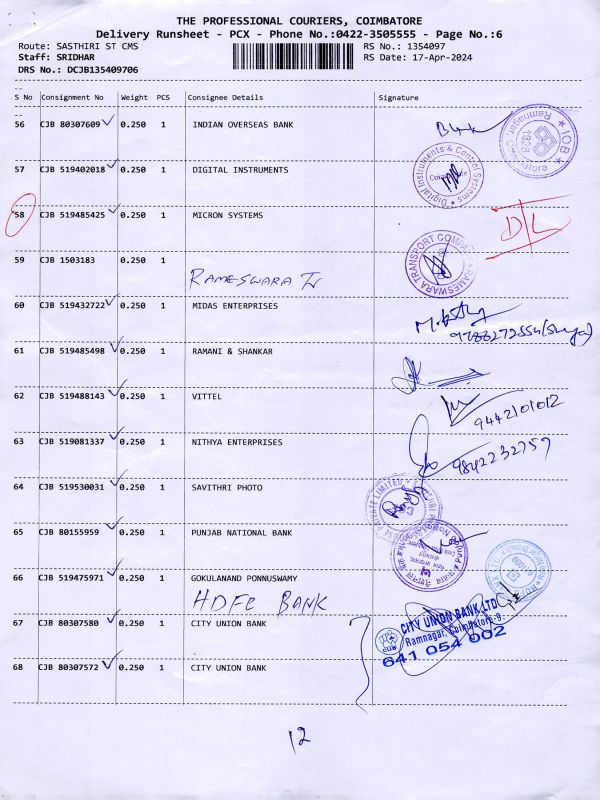 THE PROFESSIONAL COURIERS, COIMBATORE
Delivery Runsheet - PCX - Phone No.:0422-3505555 - Page No.:6
Route: SASTHIRI ST CMS RS No.: 1354097
Staff: SRIDHAR RS Date: 17-Apr-2024
DRS No.: DCJB135409706
S No Consignment No Weight PCS Consignee Details Signature
56 CJB 80307609 0.250 1 INDIAN OVERSEAS BANK
IOB Ramnagar, Coimbatore 1928
57 CJB 519402018 0.250 1 DIGITAL INSTRUMENTS
Digital Instruments & Control Systems
58 CJB 519485425 0.250 1 MICRON SYSTEMS
D/L
59 CJB 1503183 0.250 1
RAMESWARA Tr
RAMESWARA TRANSPORT
60 CJB 519432722 0.250 1 MIDAS ENTERPRISES
61 CJB 519485498 0.250 1 RAMANI & SHANKAR
62 CJB 519488143 0.250 1 VITTEL
9442101012
63 CJB 519081337 0.250 1 NITHYA ENTERPRISES
9842232757
64 CJB 519530031 0.250 1 SAVITHRI PHOTO
PRIVATE LIMITED
65 CJB 80155959 0.250 1 PUNJAB NATIONAL BANK
66 CJB 519475971 0.250 1 GOKULANAND PONNUSWAMY
HDFC BANK
67 CJB 80307580 0.250 1 CITY UNION BANK
CITY UNION BANK LTD
Ramnagar, Coimbatore-9.
641 054 002
CUB
68 CJB 80307572 0.250 1 CITY UNION BANK
12